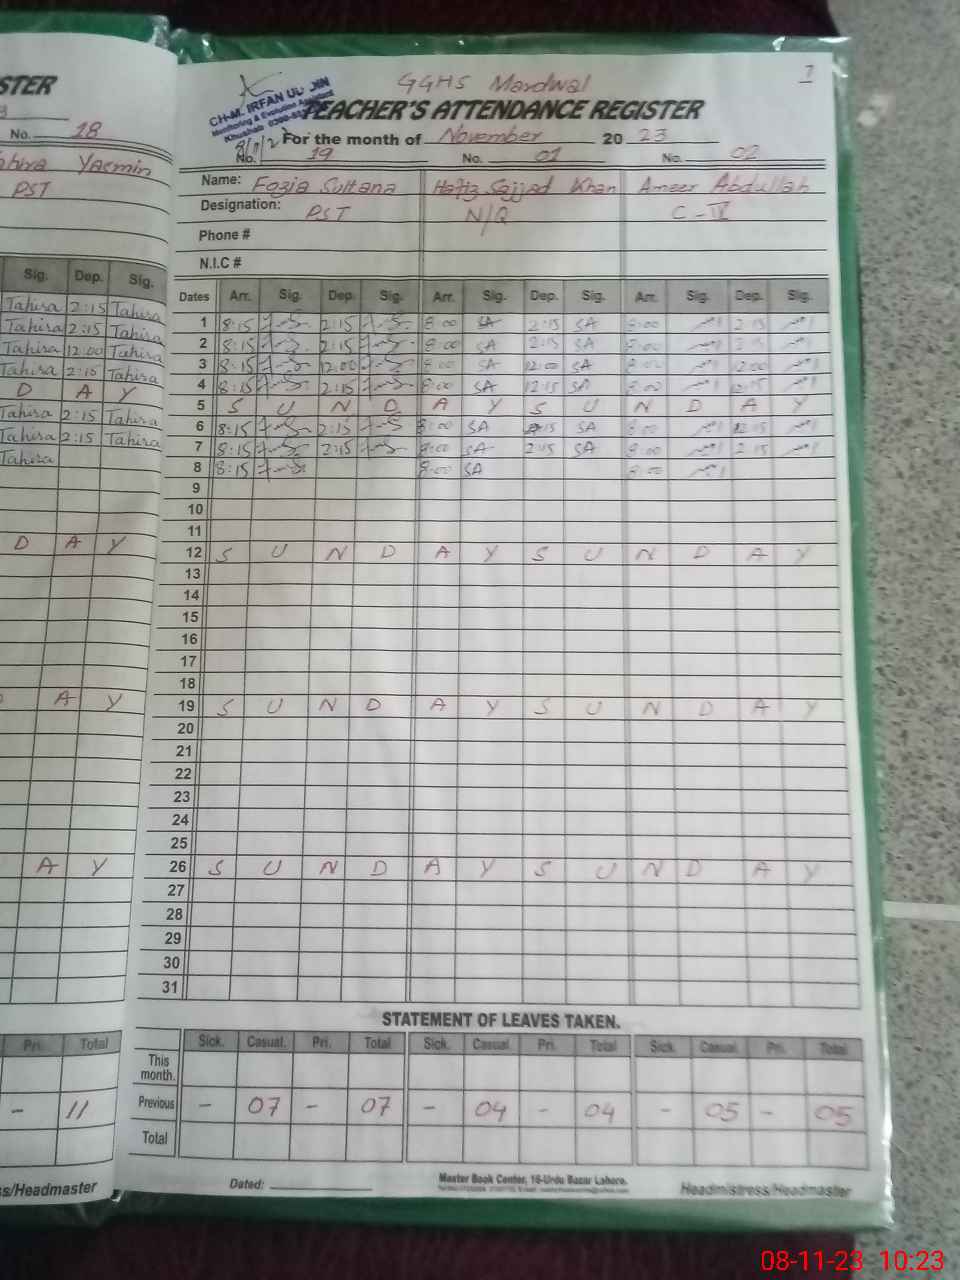 STER
No. 18
Yasmin
PST
Sig. Dep. Sig.
Tahira 2:15 Tahira
Tahira 2:15 Tahira
Tahira 12:00 Tahira
Tahira 2:15 Tahira
D A Y
Tahira 2:15 Tahira
Tahira 2:15 Tahira
Tahira
D A Y
A Y
A Y
Pri. Total
- 11
ss/Headmaster
7
GGHS Mardwal
CH-M. IRFAN UD DIN
Monitoring & Evolution Assistant
Khushab
TEACHER'S ATTENDANCE REGISTER
For the month of November 2023
No. 19 No. 01 No. 02
Name: Fozia Sultana Hafiz Sajjad Khan Ameer Abdullah
Designation: PST N/Q C-IV
Phone #
N.I.C #
Dates Arr. Sig. Dep. Sig. Arr. Sig. Dep. Sig. Arr. Sig. Dep. Sig.
1 8:15 2:15 8:00 SA 2:15 SA 8:00 2:15
2 8:15 2:15 8:00 SA 2:15 SA 8:00 2:15
3 8:15 12:00 8:00 SA 12:00 SA 8:00 12:00
4 8:15 2:15 8:00 SA 12:15 SA 8:00 12:15
5 S U N D A Y S U N D A Y
6 8:15 2:15 8:00 SA 2:15 SA 8:00
7 8:15 2:15 8:00 SA 2:15 SA 8:00 2:15
8 8:15 8:00 SA 8:00
9
10
11
12 S U N D A Y S U N D A Y
13
14
15
16
17
18
19 S U N D A Y S U N D A Y
20
21
22
23
24
25
26 S U N D A Y S U N D A Y
27
28
29
30
31
STATEMENT OF LEAVES TAKEN.
Sick. Casual. Pri. Total Sick. Casual. Pri. Total Sick. Casual. Pri. Total
This month.
Previous - 07 - 07 - 04 - 04 - 05 - 05
Total
Dated:
Master Book Center, 16-Urdu Bazar Lahore.
Headmistress/Headmaster
08-11-23 10:23